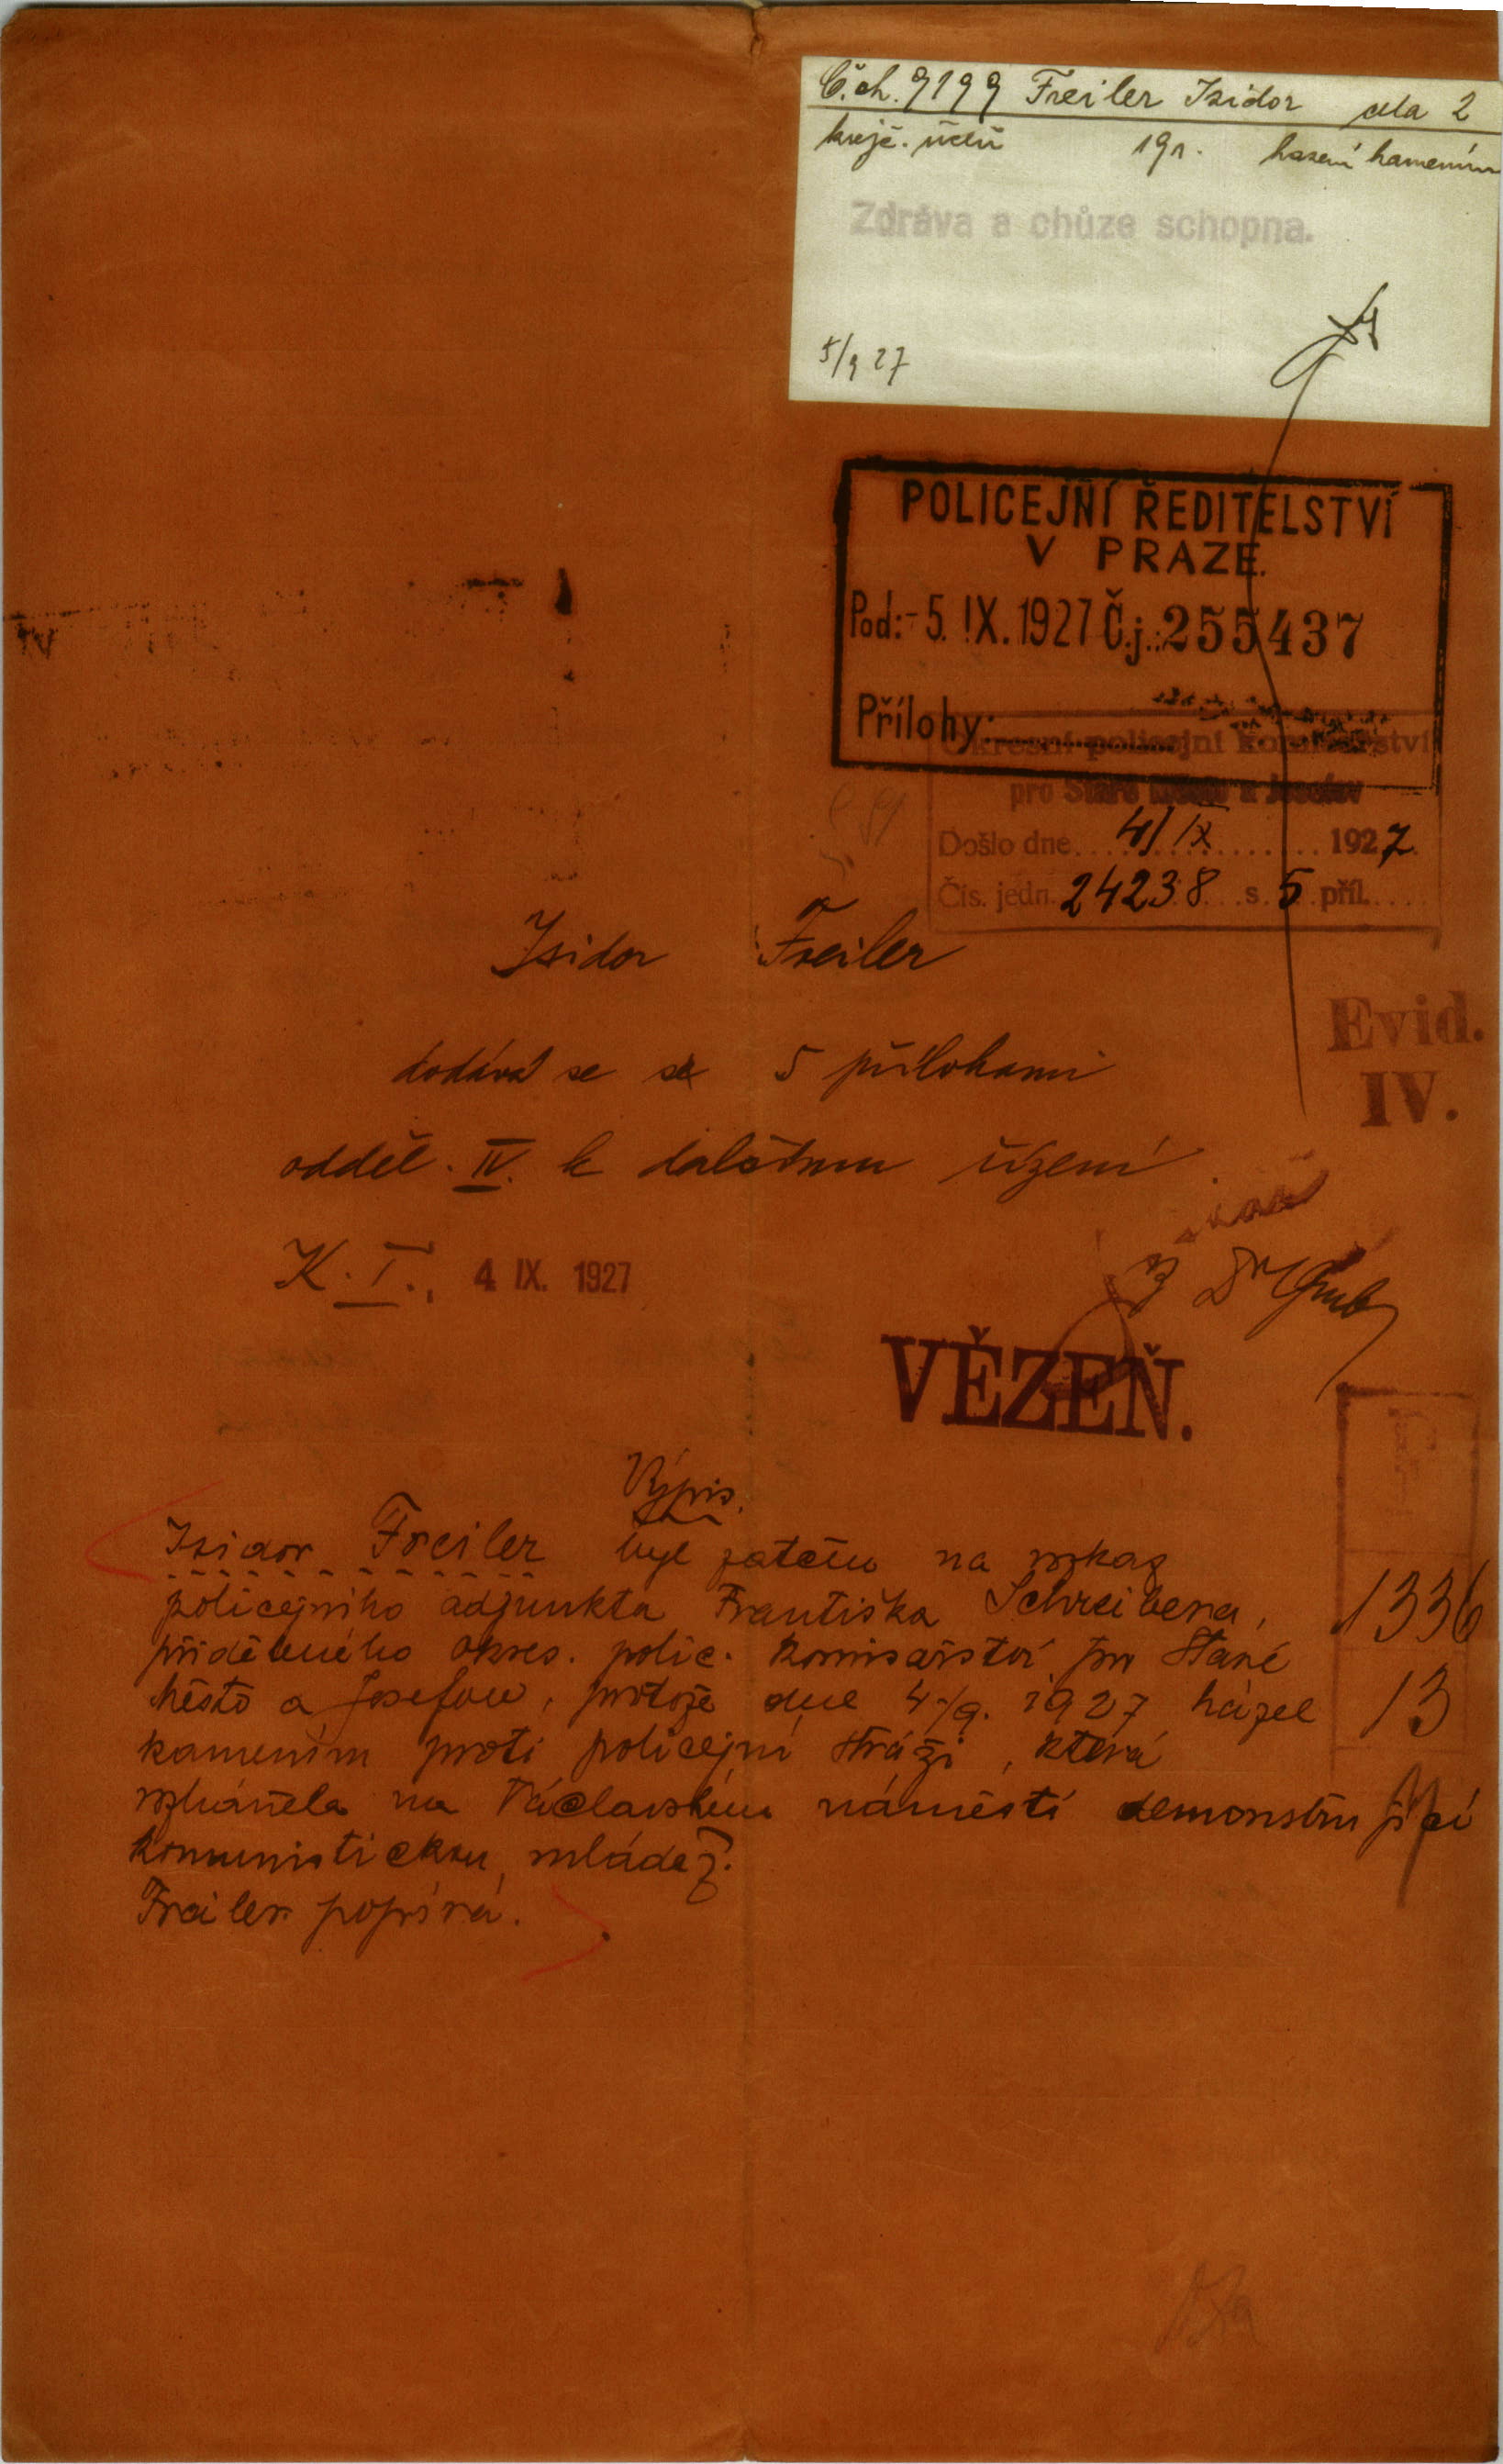 Č. ch. 9199 Freiler Isidor cela 2
krejč. učeň 19 r. házení kamením
Zdráva a chůze schopna.
5/9 27
POLICEJNÍ ŘEDITELSTVÍ
V PRAZE.
Pod: - 5. IX. 1927 Č.j.: 255437
Přílohy:
Okresní policejní komisařství
pro Staré Město a Josefov
Došlo dne 4/IX 1927.
Čís. jedn. 24238 s 5 příl.
Isidor Freiler
dodává se se 5 přílohami
odděl. IV. k dalšímu řízení
Evid.
IV.
K. I., 4 IX. 1927
VĚZEŇ.
Výpis.
Isidor Freiler byl zatčen na rozkaz
policejního adjunkta Františka Schreibera,
přiděleného okres. polic. komisařství pro Staré
Město a Josefov, protože dne 4/9. 1927 házel
kamením proti policejní stráži, která
rozháněla na Václavském náměstí demonstrující
komunistickou mládež.
Freiler popírá.
1336
13